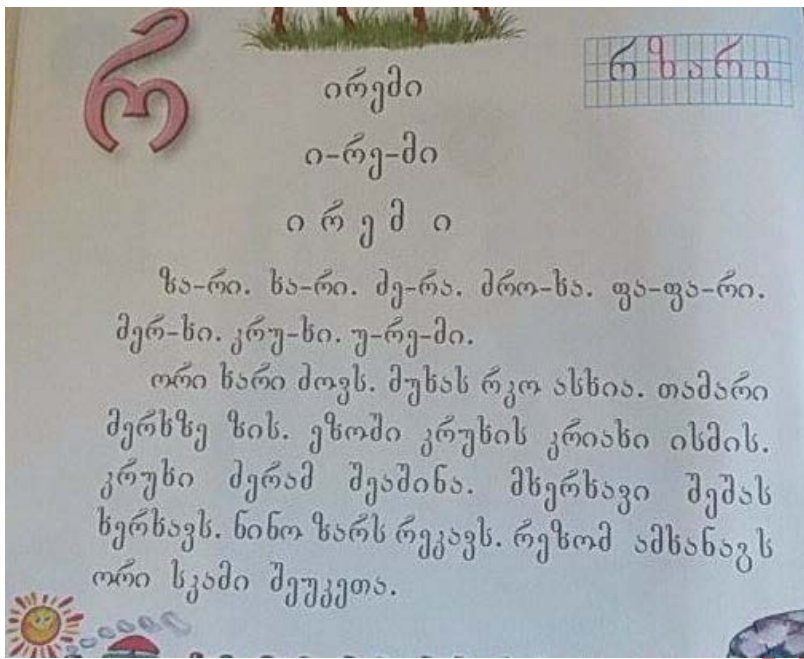 რ
რ ზარი
ირემი
ი-რე-მი
ი რ ე მ ი
ზა-რი. ხა-რი. ძე-რა. ძრო-ხა. ფა-ფა-რი.
მერ-ხი. კრუ-ხი. უ-რე-მი.
ორი ხარი ძოვს. მუხას რკო ასხია. თამარი
მერხზე ზის. ეზოში კრუხის კრიახი ისმის.
კრუხი ძერამ შეაშინა. მხერხავი შეშას
ხერხავს. ნინო ზარს რეკავს. რეზომ ამხანაგს
ორი სკამი შეუკეთა.